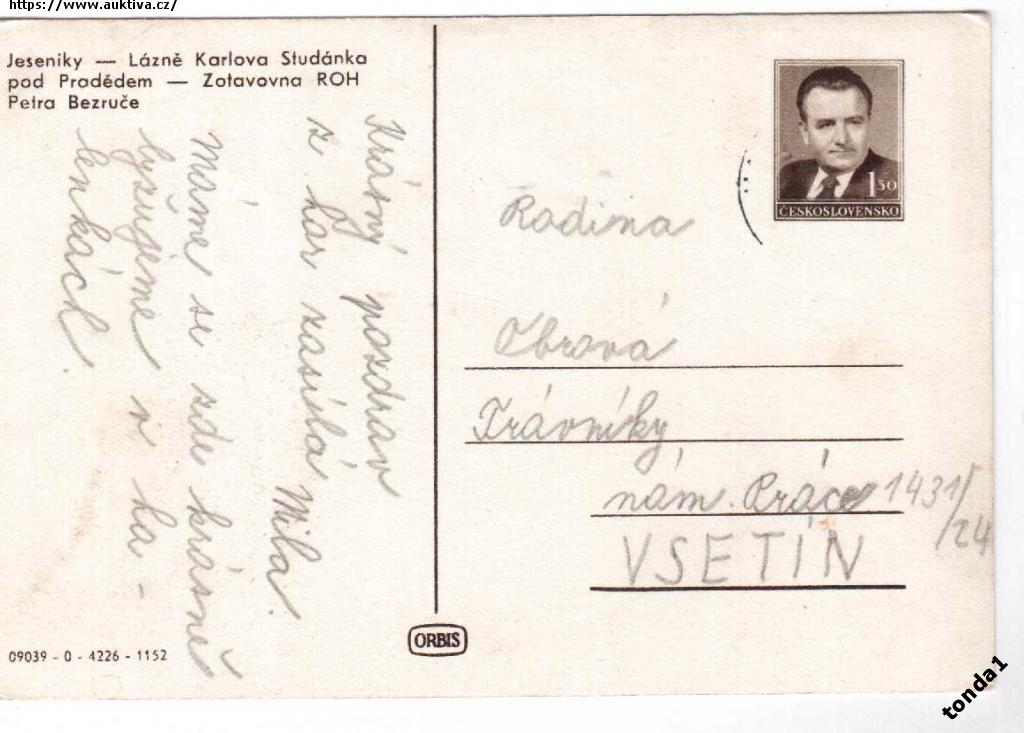 https://www.auktiva.cz/
Jeseníky — Lázně Karlova Studánka
pod Pradědem — Zotavovna ROH
Petra Bezruče
Krásný pozdrav
z hor zasílá Mila.
Máme se zde krásně
lyžujeme v ha-
lenkách.
1 50
ČESKOSLOVENSKO
Rodina
Obrová
Trávníky
nám. Práce 1431/
/24
VSETÍN
ORBIS
09039 - 0 - 4226 - 1152
tonda1